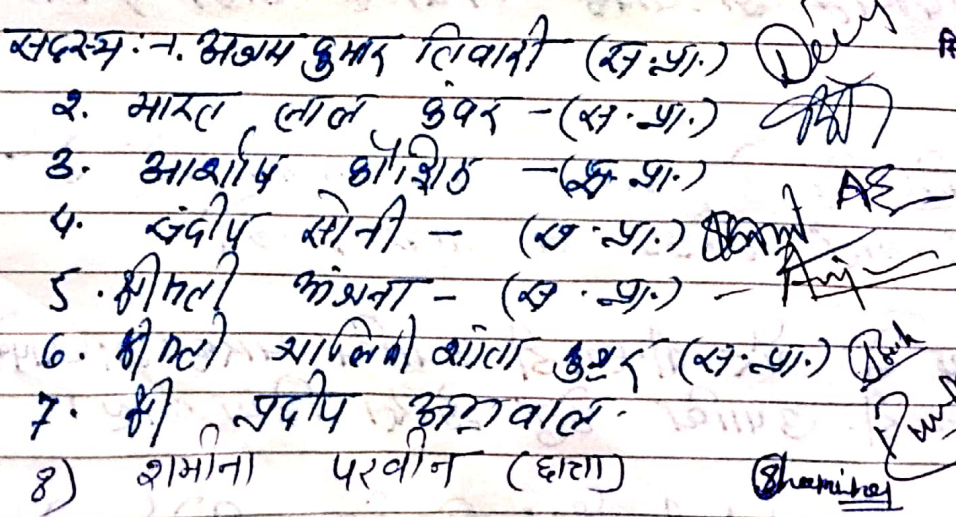 सदस्य :- 1. अजय कुमार तिवारी (स.प्रा.)
2. भारत लाल कंवर - (स.प्रा.)
3. आशीष कौशिक - (स.प्रा.)
4. संदीप सोनी - (स.प्रा.)
5. श्रीमती अंजना - (स.प्रा.) -
6. श्रीमती शांता कुजूर (स.प्रा.)
7. श्री प्रदीप अग्रवाल.
8) शमीना परवीन (छात्रा)